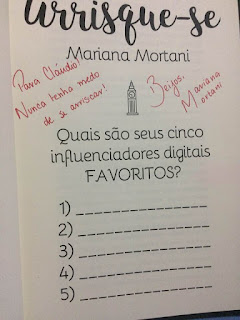 Arrisque-se
Mariana Mortani
Para Cláudio!
Nunca tenha medo
de se arriscar!
Beijos,
Mariana
Mortani
Quais são seus cinco
influenciadores digitais
FAVORITOS?
1) _______________
2) _______________
3) _______________
4) _______________
5) _______________